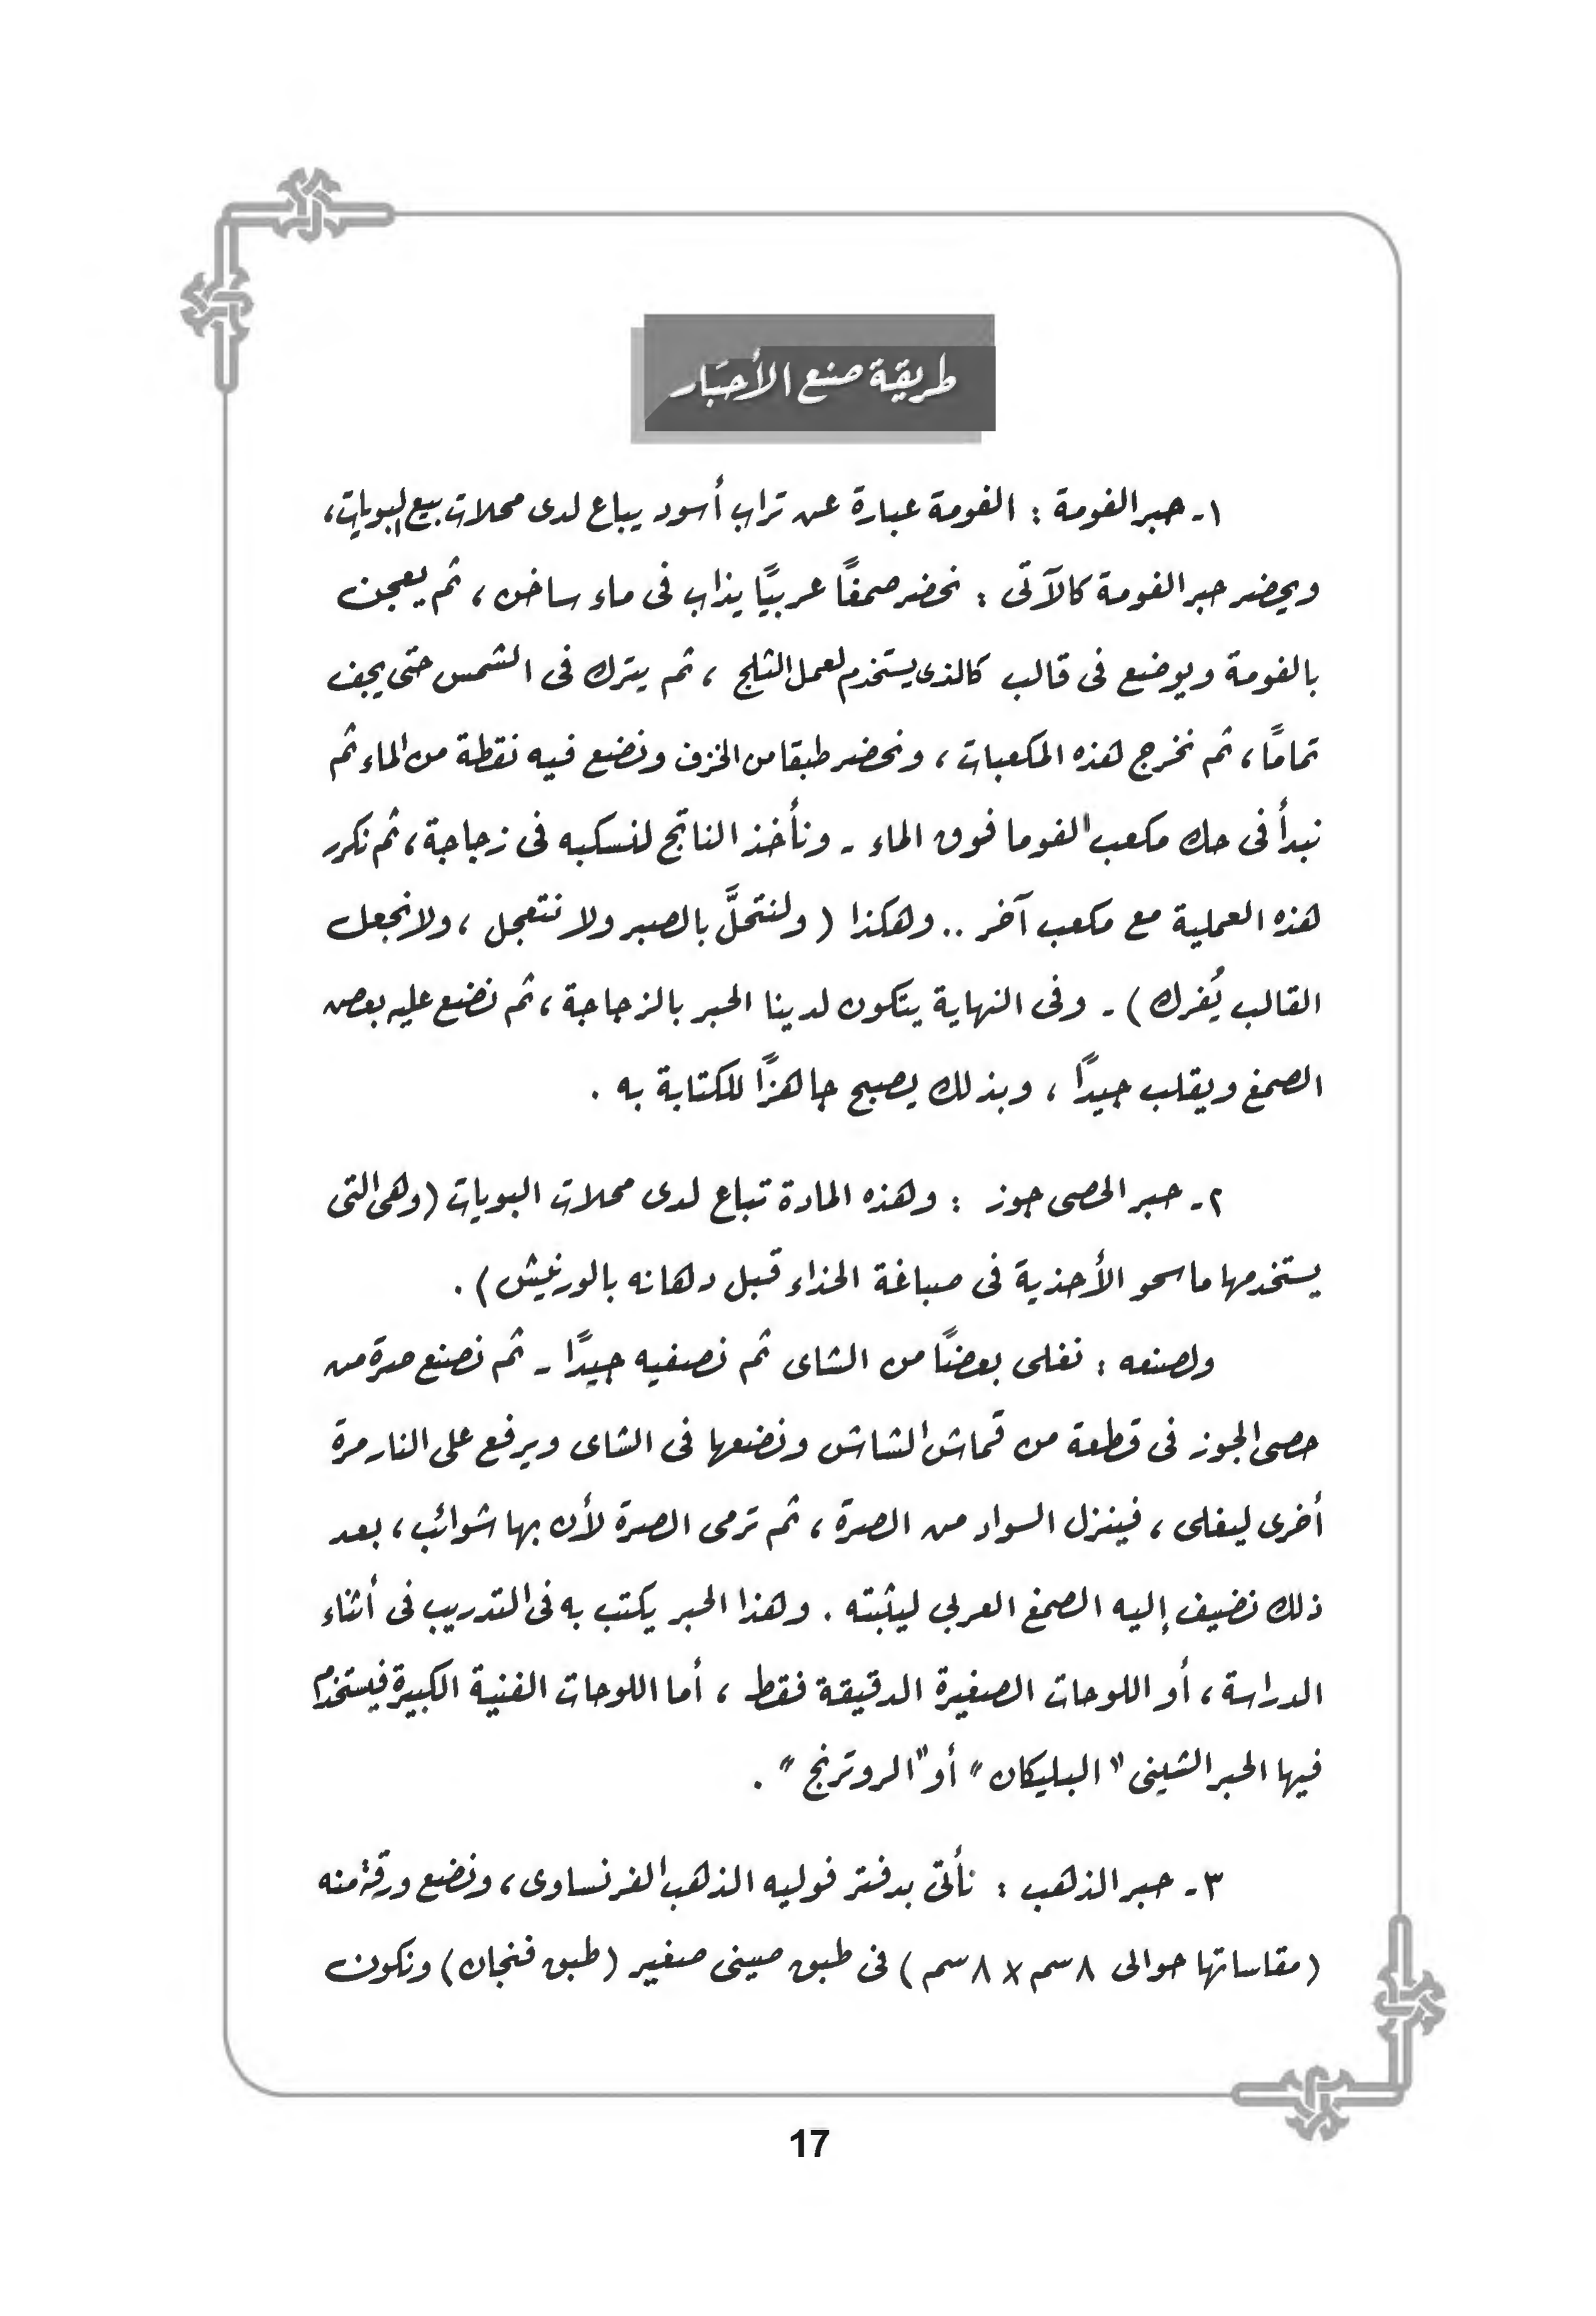 طريقة صنع الأحبار
١- حبر الفومة : الفومة عبارة عن تراب أسود يباع لدى محلات بيع البويات،
ويحضر حبر الفومة كالآتى : نحضر صمغًا عربيًا يذاب فى ماء ساخن ، ثم يعجن
بالفومة ويوضع فى قالب كالذى يستخدم لعمل الثلج ، ثم يترك فى الشمس حتى يجف
تمامًا ، ثم نخرج هذه المكعبات ، ونحضر طبقا من الخزف ونضع فيه نقطة من الماء ثم
نبدأ فى حك مكعب الفوما فوق الماء - ونأخذ الناتج لنسكبه فى زجاجة ، ثم نكرر
هذه العملية مع مكعب آخر .. وهكذا ( ولنتحلَّ بالصبر ولا نتعجل ، ولا نجعل
القالب يُفرك ) - وفى النهاية يتكون لدينا الحبر بالزجاجة ، ثم نضع عليه بعض
الصمغ ويقلب جيدًا ، وبذلك يصبح جاهزًا للكتابة به .
٢- حبر الحصى جوز : وهذه المادة تباع لدى محلات البويات (وهى التى
يستخدمها ماسحو الأحذية فى صباغة الحذاء قبل دهانه بالورنيش) .
ولصنعه : نغلى بعضًا من الشاى ثم نصفيه جيدًا - ثم نصنع صرة من
حصى الجوز فى قطعة من قماش الشاش ونضعها فى الشاى ويرفع على النار مرة
أخرى ليغلى ، فينزل السواد من الصرة ، ثم ترمى الصرة لأن بها شوائب ، بعد
ذلك نضيف إليه الصمغ العربي ليثبته . وهذا الحبر يكتب به فى التدريب فى أثناء
الدراسة ، أو اللوحات الصغيرة الدقيقة فقط ، أما اللوحات الفنية الكبيرة فيستخدم
فيها الحبر الشينى "البليكان" أو "الروترنج" .
٣- حبر الذهب : نأتى بدفتر فوليه الذهب الفرنساوى ، ونضع ورقة منه
(مقاساتها حوالى ٨ سم × ٨ سم ) فى طبق صينى صغير (طبق فنجان) ونكون
17